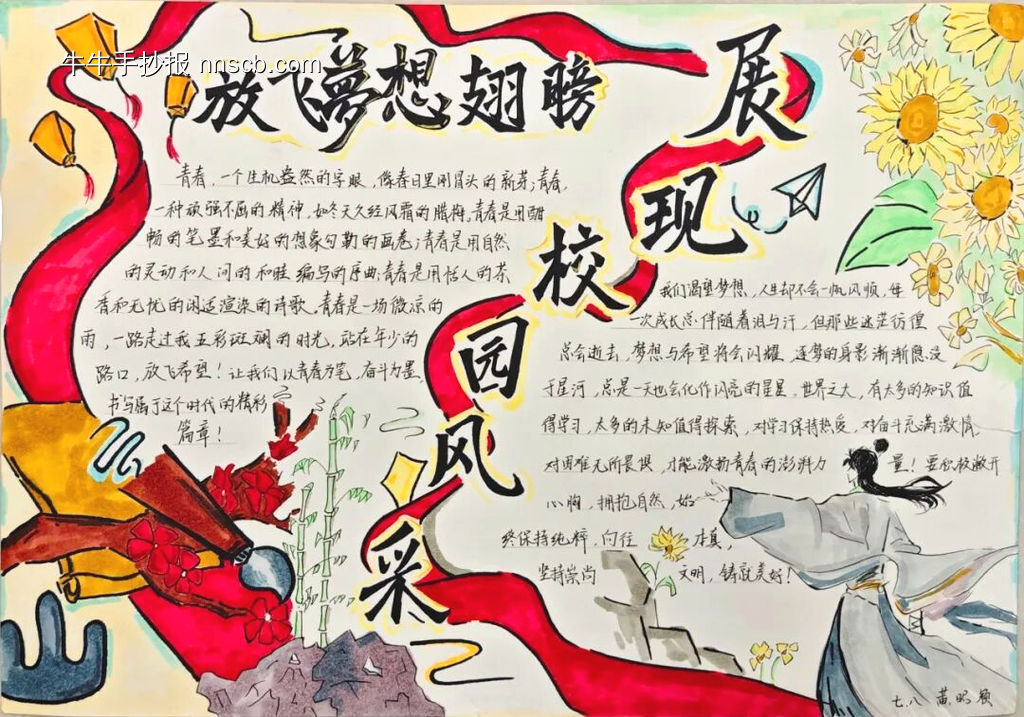 牛牛手抄报 nnscb.com
放飞夢想 翅膀
展现校园风采
青春，一个生机盎然的字眼，像春日里刚冒头的新芽；青春，
一种顽强不屈的精神，如冬天久经风霜的腊梅。青春是用酣
畅的笔墨和美好的想象勾勒的画卷；青春是用自然
的灵动和人间的和睦编写的序曲；青春是用怡人的茶
香和无忧的闲适渲染的诗歌。青春是一场微凉的
雨，一路走过我五彩斑斓的时光，站在年少的
路口，放飞希望！让我们以青春为笔，奋斗为墨，
书写属于这个时代的精彩
篇章！
我们渴望梦想，人生却不会一帆风顺，每
一次成长总伴随着泪与汗，但那些迷茫彷徨
总会逝去，梦想与希望将会闪耀，逐梦的身影渐渐隐没
于星河，总是一天也会化作闪亮的星星。世界之大，有太多的知识值
得学习，太多的未知值得探索，对学习保持热爱，对奋斗充满激情，
对困难无所畏惧，才能激扬青春的澎湃力量！要积极敞开
心胸，拥抱自然，始
终保持纯粹，向往本真，
坚持崇尚文明，铸就美好！
七.八 黄明颖